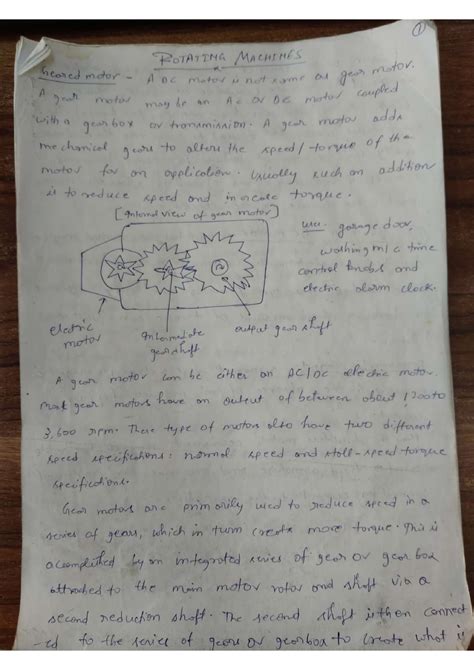 ①
ROTATING MACHINES
Geared motor - A DC motor is not same as gear motor.
A gear motor may be an AC or DC motor coupled
with a gearbox or transmission. A gear motor adds
mechanical gears to alter the speed/torque of the
motor for an application. Usually such an addition
is to reduce speed and increase torque.
[Internal view of gear motor]
use: garage door,
washing m/c time
control knobs and
electric alarm clock.
electric
motor
Intermediate
gear shaft
output gear shaft
A gear motor can be either an AC/DC electric motor.
Most gear motors have an output of between about 1200 to
3,600 rpm. These type of motors also have two different
speed specifications: normal speed and stall-speed torque
specifications.
Gear motors are primarily used to reduce speed in a
series of gears, which in turn create more torque. This is
accomplished by an integrated series of gear or gear box
attached to the main motor rotor and shaft via a
second reduction shaft. The second shaft is then connect
-ed to the series of gears or gearbox to create what is